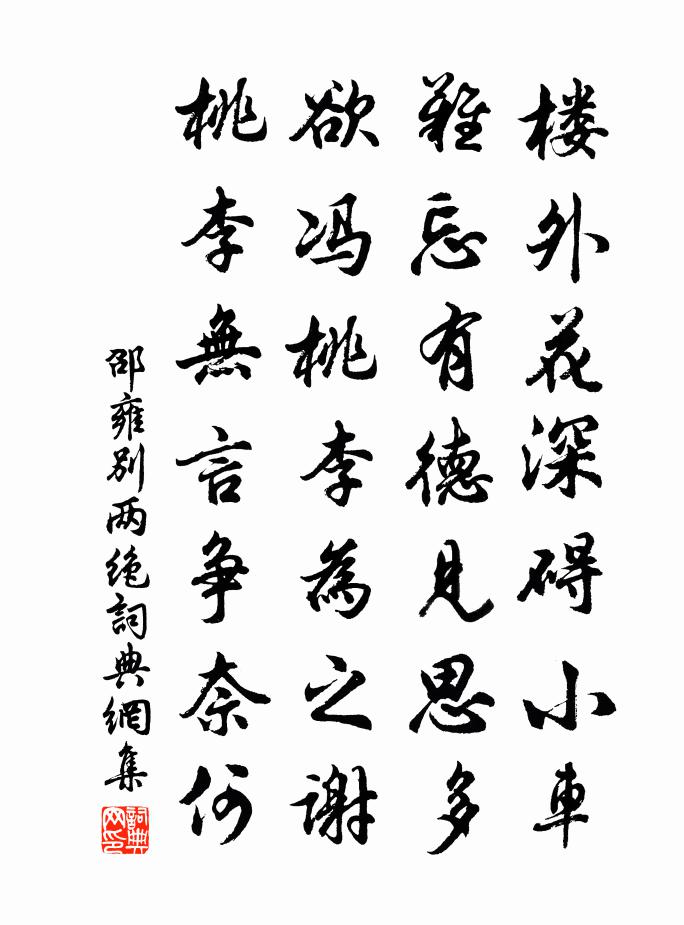 楼外花深碍小車
難忘有德見思多
欲冯桃李為之謝
桃李無言争奈何
邵雍别两绝詞典網集
詞典网印